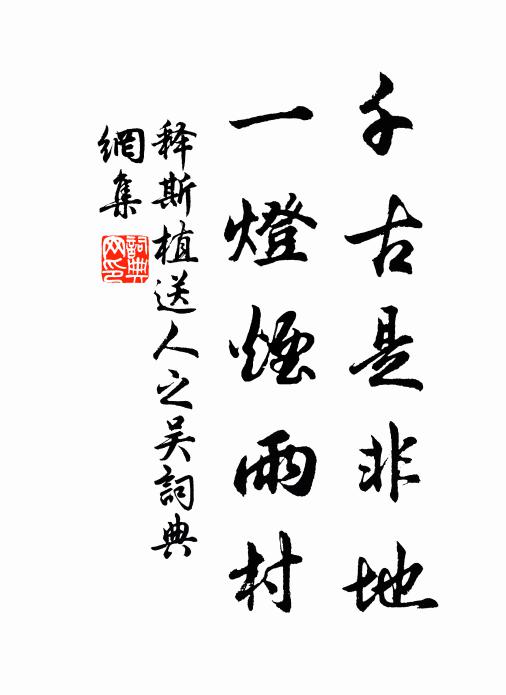 千古是非地
一燈煙雨村
释斯植送人之吴詞典
網集
詞典网印